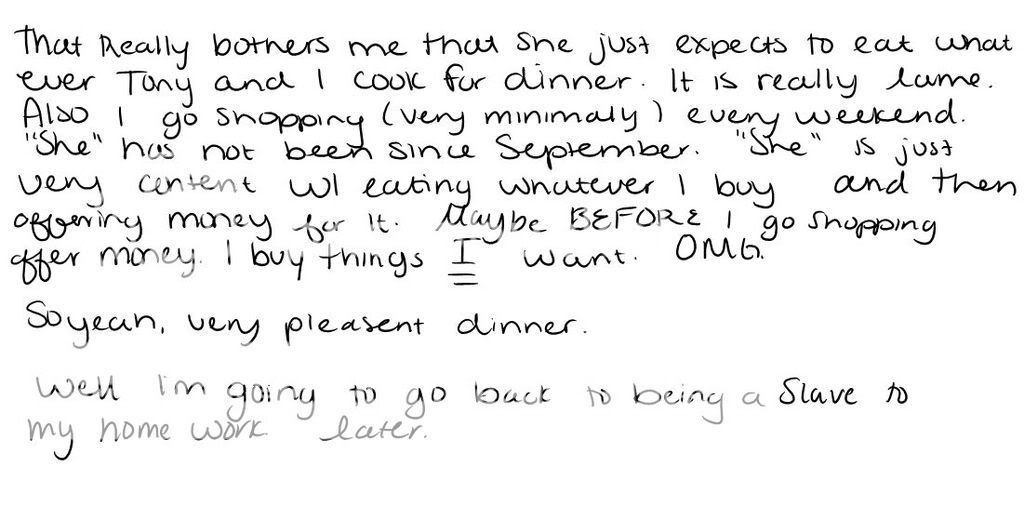 That Really bothers me that she just expects to eat what
ever Tony and I cook for dinner. It is really lame.
Also I go shopping (very minimaly) every weekend.
"She" has not been since September. "She" is just
very content w/ eating whatever I buy and then
offering money for it. Maybe BEFORE I go shopping
offer money. I buy things I want. OMG.
So yeah, very pleasent dinner.
Well I'm going to go back to being a Slave to
my home work. later.